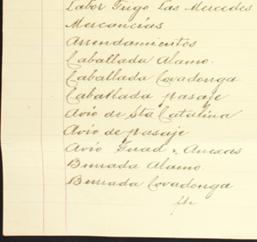 Labor Trigo Las Mercedes
Mercancías
Arrendamientos
Caballada Alamo
Caballada Covadonga
Caballada Pasaje
Avío de Sta Catalina
Avío de Pasaje
Avío Guad. y Anexas
Burrada Alamo
Burrada Covadonga